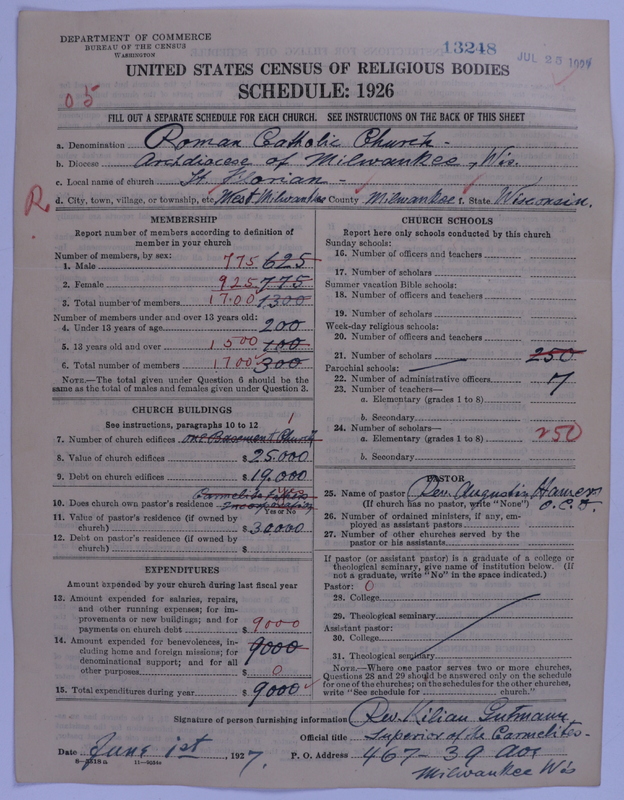 DEPARTMENT OF COMMERCE
BUREAU OF THE CENSUS
WASHINGTON
13248
JUL 25 1927
UNITED STATES CENSUS OF RELIGIOUS BODIES
SCHEDULE: 1926
05
FILL OUT A SEPARATE SCHEDULE FOR EACH CHURCH. SEE INSTRUCTIONS ON THE BACK OF THIS SHEET
a. Denomination Roman Catholic Church -
b. Diocese Archdiocese of Milwaukee, Wis.
c. Local name of church St. Florian -
R. d. City, town, village, or township, etc West Milwaukee County Milwaukee f. State Wisconsin.
MEMBERSHIP
Report number of members according to definition of
member in your church
Number of members, by sex:
1. Male 775 625
2. Female 925 775
3. Total number of members 1700 1300
Number of members under and over 13 years old:
4. Under 13 years of age 200
5. 13 years old and over 1500 100
6. Total number of members 1700 300
NOTE.—The total given under Question 6 should be the
same as the total of males and females given under Question 3.
CHURCH BUILDINGS
See instructions, paragraphs 10 to 12
1
7. Number of church edifices one Basement Church
8. Value of church edifices $ 25.000
9. Debt on church edifices $ 19.000
Carmelite Fathers
10. Does church own pastor's residence Incorporation
Yes or No
11. Value of pastor's residence (if owned by
church) $ 30000
12. Debt on pastor's residence (if owned by
church) $
EXPENDITURES
Amount expended by your church during last fiscal year
13. Amount expended for salaries, repairs,
and other running expenses; for im-
provements or new buildings; and for
payments on church debt $ 9000
14. Amount expended for benevolences, in-
cluding home and foreign missions; for
denominational support; and for all
other purposes $ 9000 0
15. Total expenditures during year $ 9000
CHURCH SCHOOLS
Report here only schools conducted by this church
Sunday schools:
16. Number of officers and teachers
17. Number of scholars
Summer vacation Bible schools:
18. Number of officers and teachers
19. Number of scholars
Week-day religious schools:
20. Number of officers and teachers
21. Number of scholars 250
Parochial schools:
22. Number of administrative officers 7
23. Number of teachers—
a. Elementary (grades 1 to 8)
b. Secondary
24. Number of scholars—
a. Elementary (grades 1 to 8) 250
b. Secondary
PASTOR
25. Name of pastor Rev. Augustin Hamers
(If church has no pastor, write "None") O.C.D.
26. Number of ordained ministers, if any, em-
ployed as assistant pastors
27. Number of other churches served by the
pastor or his assistants
If pastor (or assistant pastor) is a graduate of a college or
theological seminary, give name of institution below. (If
not a graduate, write "No" in the space indicated.)
Pastor: 0
28. College
29. Theological seminary
Assistant pastor:
30. College
31. Theological seminary
NOTE.—Where one pastor serves two or more churches,
Questions 28 and 29 should be answered only on the schedule
for one of the churches; on the schedules for the other churches,
write "See schedule for church."
Signature of person furnishing information Rev. Kilian Gutmann
Official title Superior of the Carmelites -
Date June 1st, 1927. P. O. Address 467 - 39 Ave
8—3518 a 11—9054e
Milwaukee Wis